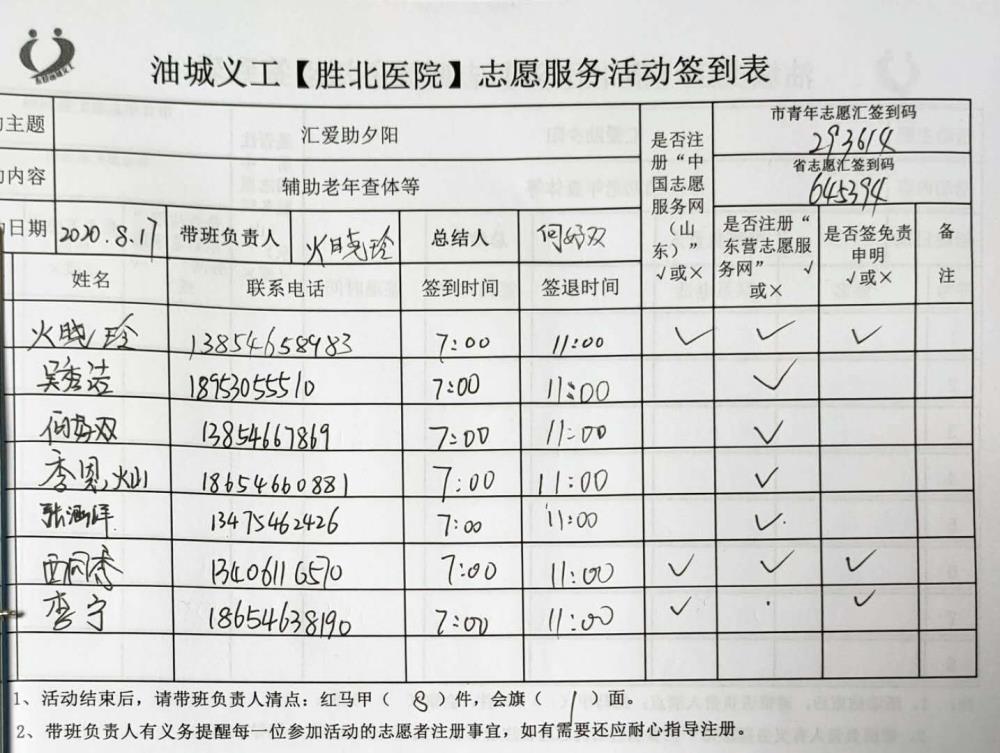 油城义工【胜北医院】志愿服务活动签到表
主题 汇爱助夕阳 是否注册“中国志愿服务网（山东）” √或× 市青年志愿汇签到码 293614
省志愿汇签到码 645394
内容 辅助老年查体等
日期 2020.8.17 带班负责人 火晓玲 总结人 何好双 是否注册“东营志愿服务网” √或× 是否签免责申明 √或× 备注
姓名 联系电话 签到时间 签退时间
火晓玲 13854658983 7:00 11:00 ✓ ✓ ✓
吴秀洁 18953055510 7:00 11:00 ✓
何好双 13854667869 7:00 11:00 ✓
季恩灿 18654660881 7:00 11:00 ✓
张涵洋 13475462426 7:00 11:00 ✓
13406116570 7:00 11:00 ✓ ✓ ✓
李宁 18654638190 7:00 11:00 ✓ ✓
1、活动结束后，请带班负责人清点：红马甲（ 8 ）件，会旗（ 1 ）面。
2、带班负责人有义务提醒每一位参加活动的志愿者注册事宜，如有需要还应耐心指导注册。